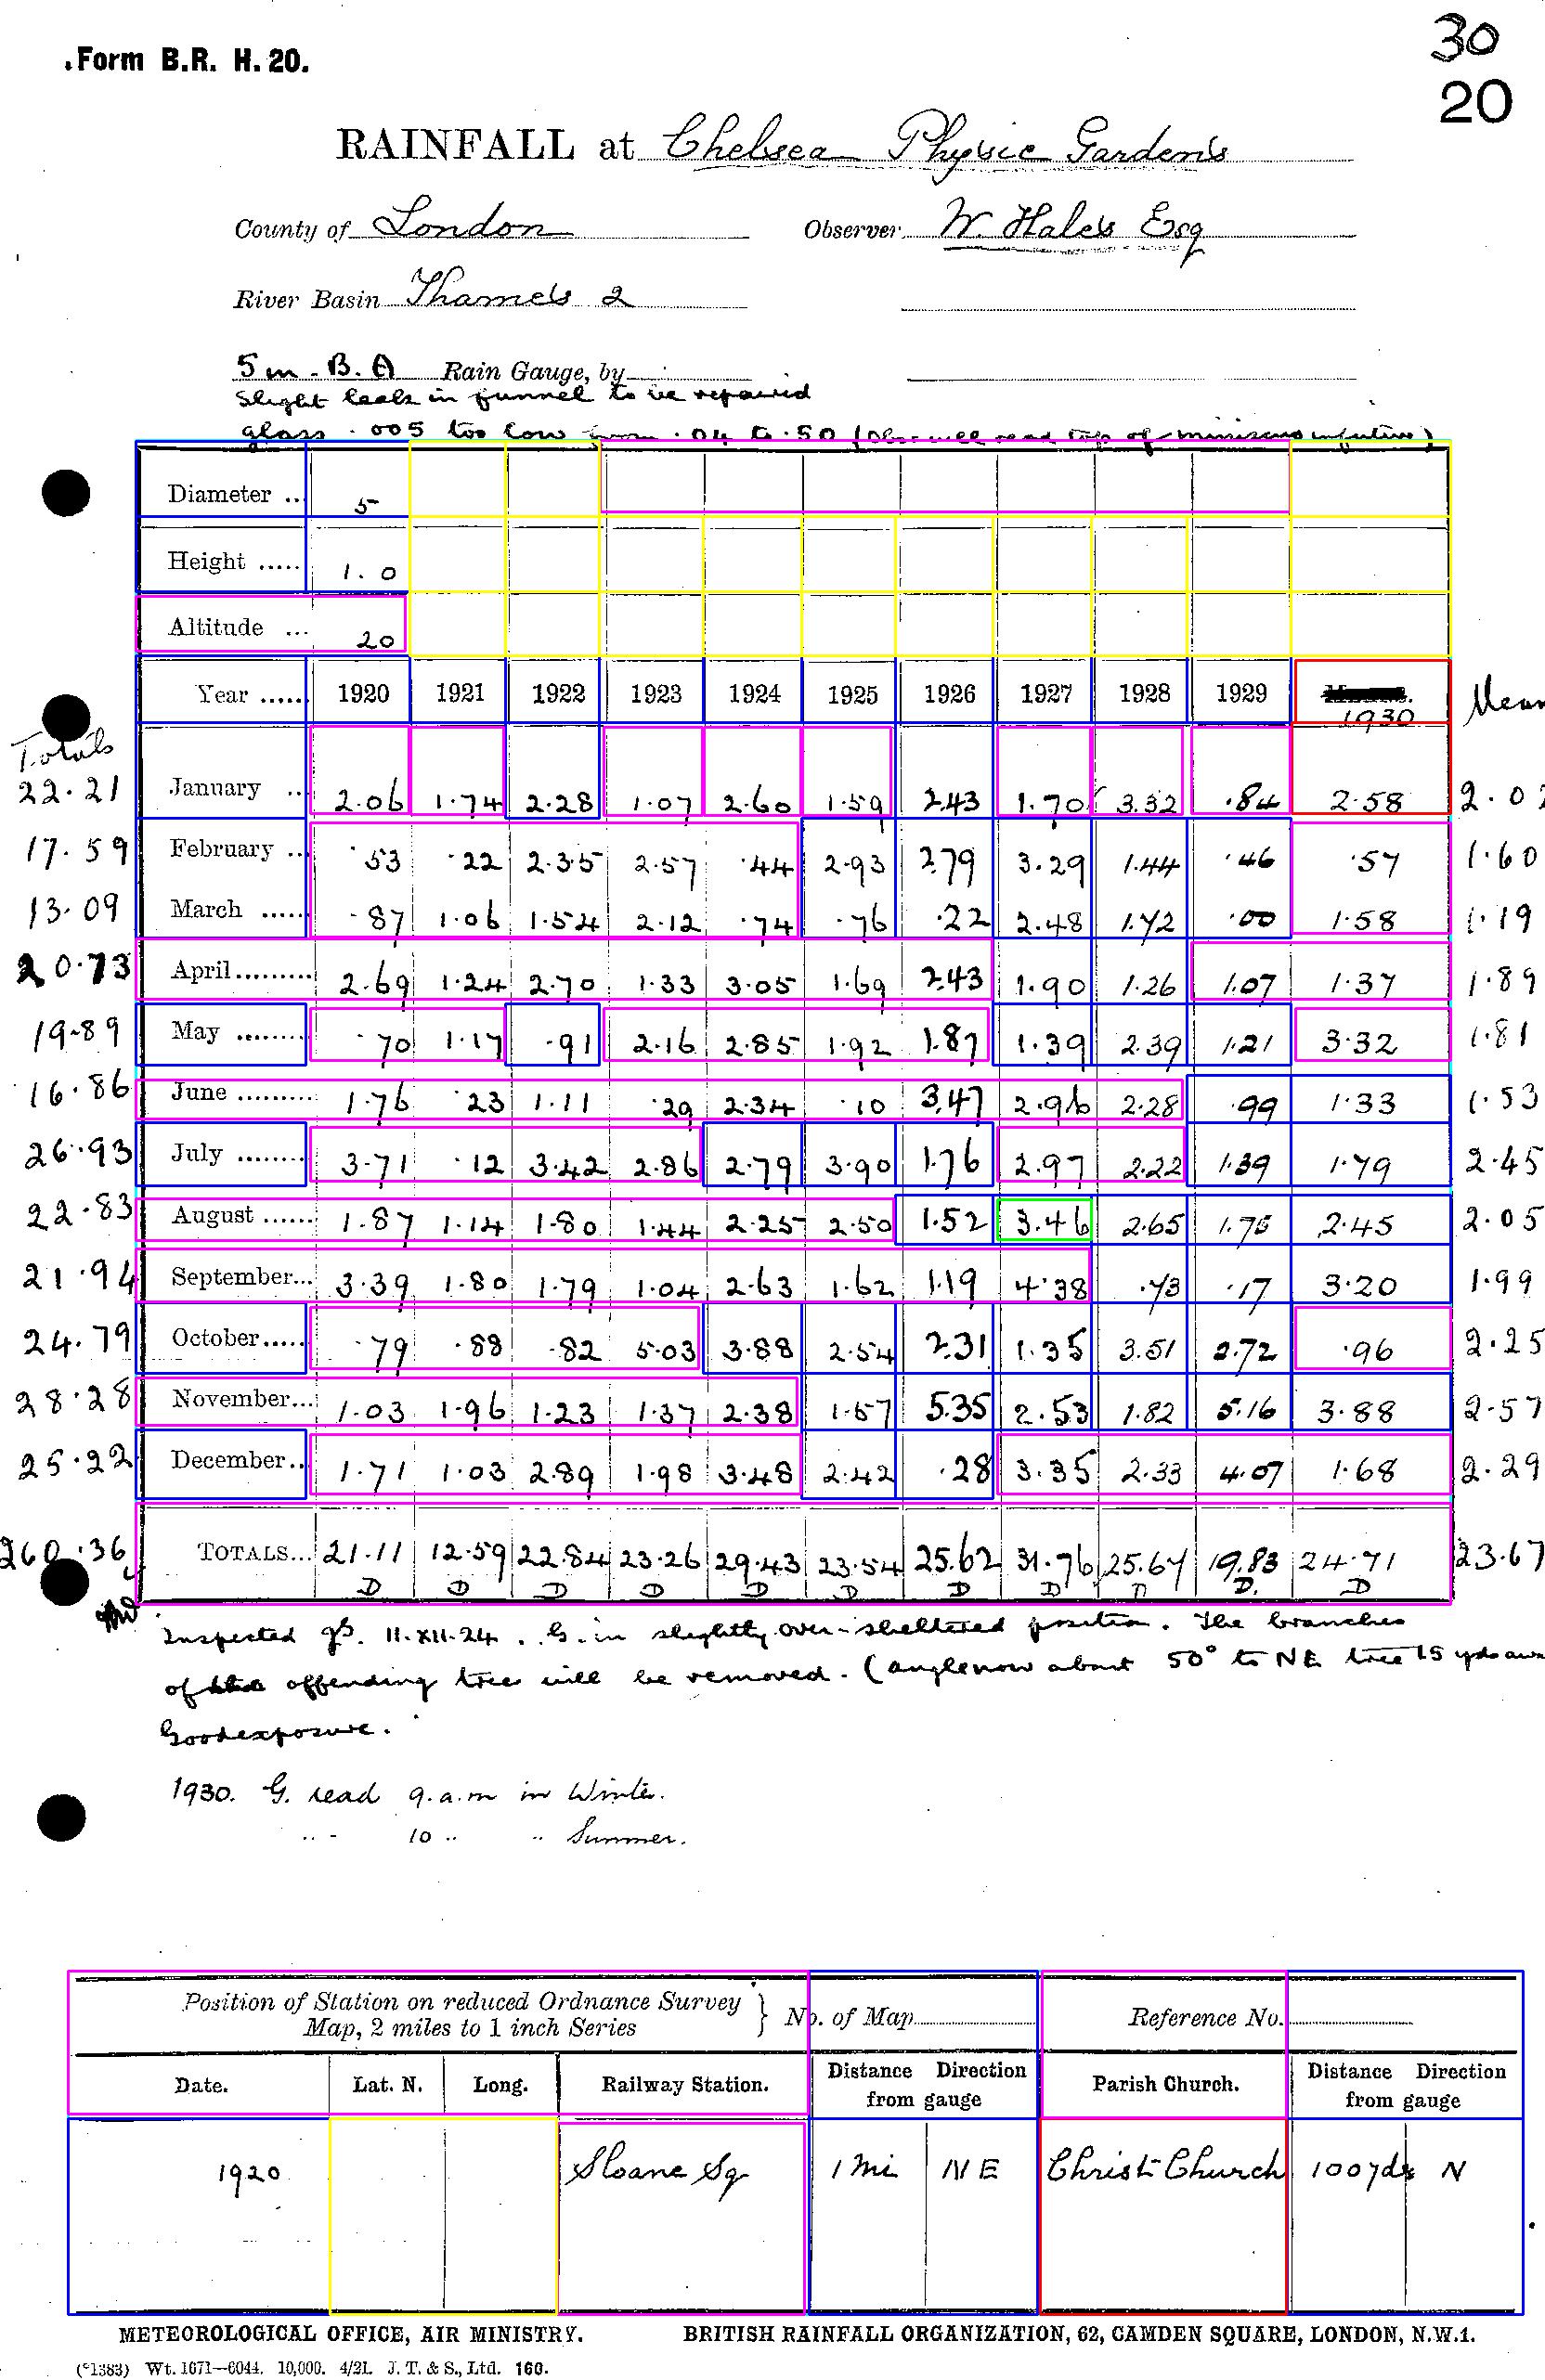 30
Form B.R. H. 20.
20
RAINFALL at Chelsea Physic Gardens
County of London Observer W. Hales Esq
River Basin Thames 2
5 in. B. A Rain Gauge, by
Slight leak in funnel to be repaired
glass .005 too low from .04 to .50 (Obs will read top of meniscus in future)
Diameter .. 5
Height ..... 1.0
Altitude ... 20
Year ...... 1920 1921 1922 1923 1924 1925 1926 1927 1928 1929 1930 Mean
Totals
22.21 January .. 2.06 1.74 2.28 1.07 2.60 1.59 2.43 1.70 3.32 .84 2.58 2.02
17.59 February .. .53 .22 2.35 2.57 .44 2.93 2.79 3.29 1.44 .46 .57 1.60
13.09 March ...... .87 1.06 1.54 2.12 .74 .76 .22 2.48 1.72 .00 1.58 1.19
20.73 April......... 2.69 1.24 2.70 1.33 3.05 1.69 2.43 1.90 1.26 1.07 1.37 1.89
19.89 May ......... .70 1.17 .91 2.16 2.85 1.92 1.87 1.39 2.39 1.21 3.32 1.81
16.86 June ......... 1.76 .23 1.11 .29 2.34 .10 3.47 2.96 2.28 .99 1.33 1.53
26.93 July ......... 3.71 .12 3.42 2.86 2.79 3.90 1.76 2.97 2.22 1.39 1.79 2.45
22.83 August ...... 1.87 1.14 1.80 1.44 2.25 2.50 1.52 3.46 2.65 1.75 2.45 2.05
21.94 September... 3.39 1.80 1.79 1.04 2.63 1.62 1.19 4.38 .73 .17 3.20 1.99
24.79 October..... .79 .88 .82 5.03 3.88 2.54 2.31 1.35 3.51 2.72 .96 2.25
28.28 November... 1.03 1.96 1.23 1.37 2.38 1.57 5.35 2.53 1.82 5.16 3.88 2.57
25.22 December.. 1.71 1.03 2.89 1.98 3.48 2.42 .28 3.35 2.33 4.07 1.68 2.29
260.36 TOTALS... 21.11 12.59 22.84 23.26 29.43 23.54 25.62 31.76 25.67 19.83 24.71 23.67
D D D D D D D D D D. D
Inspected . 11.XII.24. G. in slightly over-sheltered position. The branches
of the offending tree will be removed. (angle now about 50° to NE tree 15 yds
Good exposure.
1930. G. read 9.a.m in Winter.
.. - 10 .. .. Summer.
Position of Station on reduced Ordnance Survey Map, 2 miles to 1 inch Series } No. of Map Reference No.
Date. Lat. N. Long. Railway Station. Distance Direction from gauge Parish Church. Distance Direction from gauge
1920 Sloane Sq 1 mi NE Christ Church 100 yds N
METEOROLOGICAL OFFICE, AIR MINISTRY. BRITISH RAINFALL ORGANIZATION, 62, CAMDEN SQUARE, LONDON, N.W.1.
(*1383) Wt. 1671—6044. 10,000. 4/21. J. T. & S., Ltd. 160.